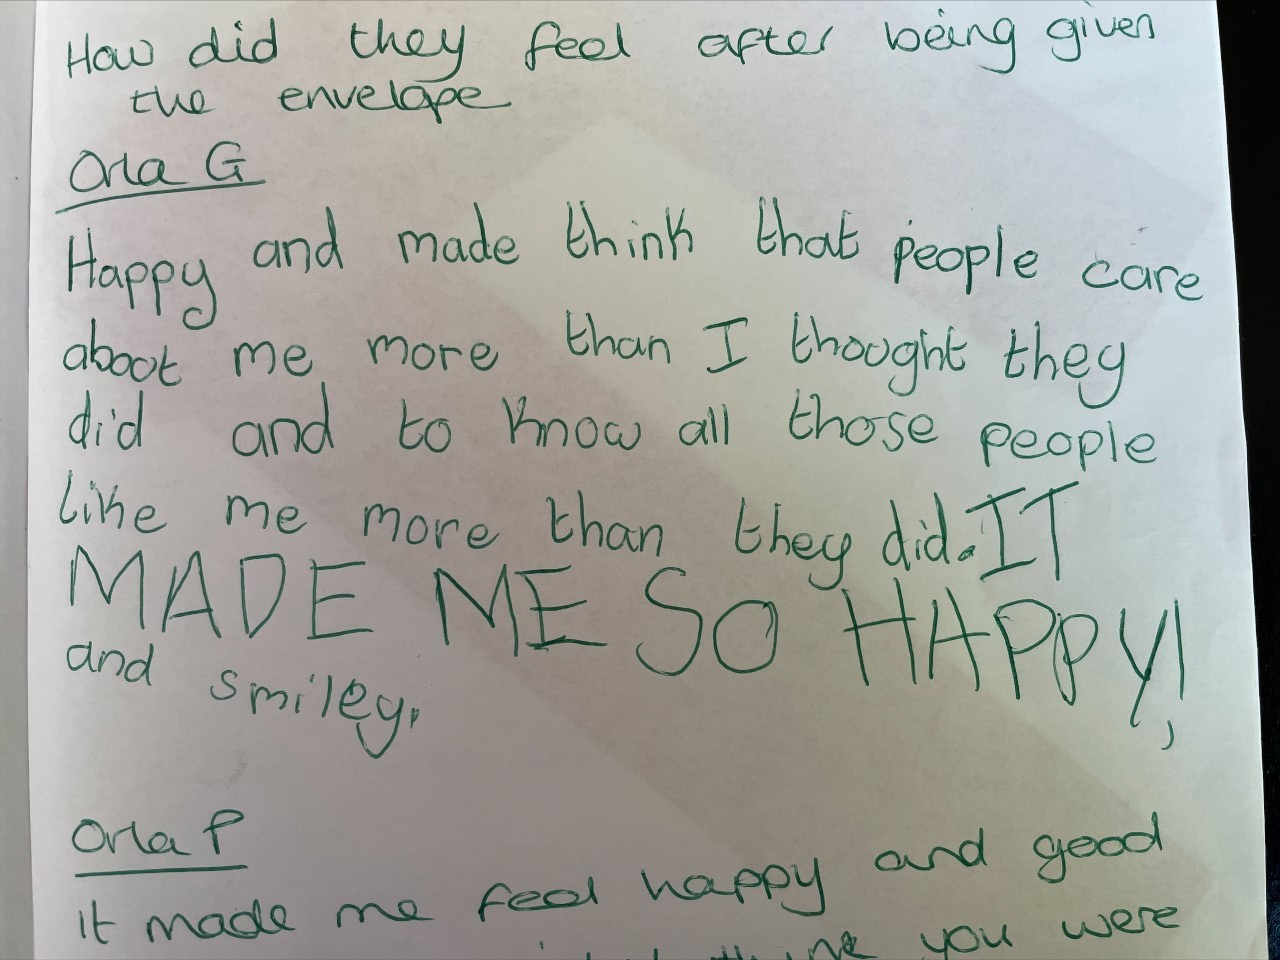 How did they feel after being given
the envelope
Orla G
Happy and made think that people care
aboot me more than I thooght they
did and to know all those people
like me more than they did. IT
MADE ME SO HAPPY!,
and smiley.
Orla P
It made me feel happy and good
think you were